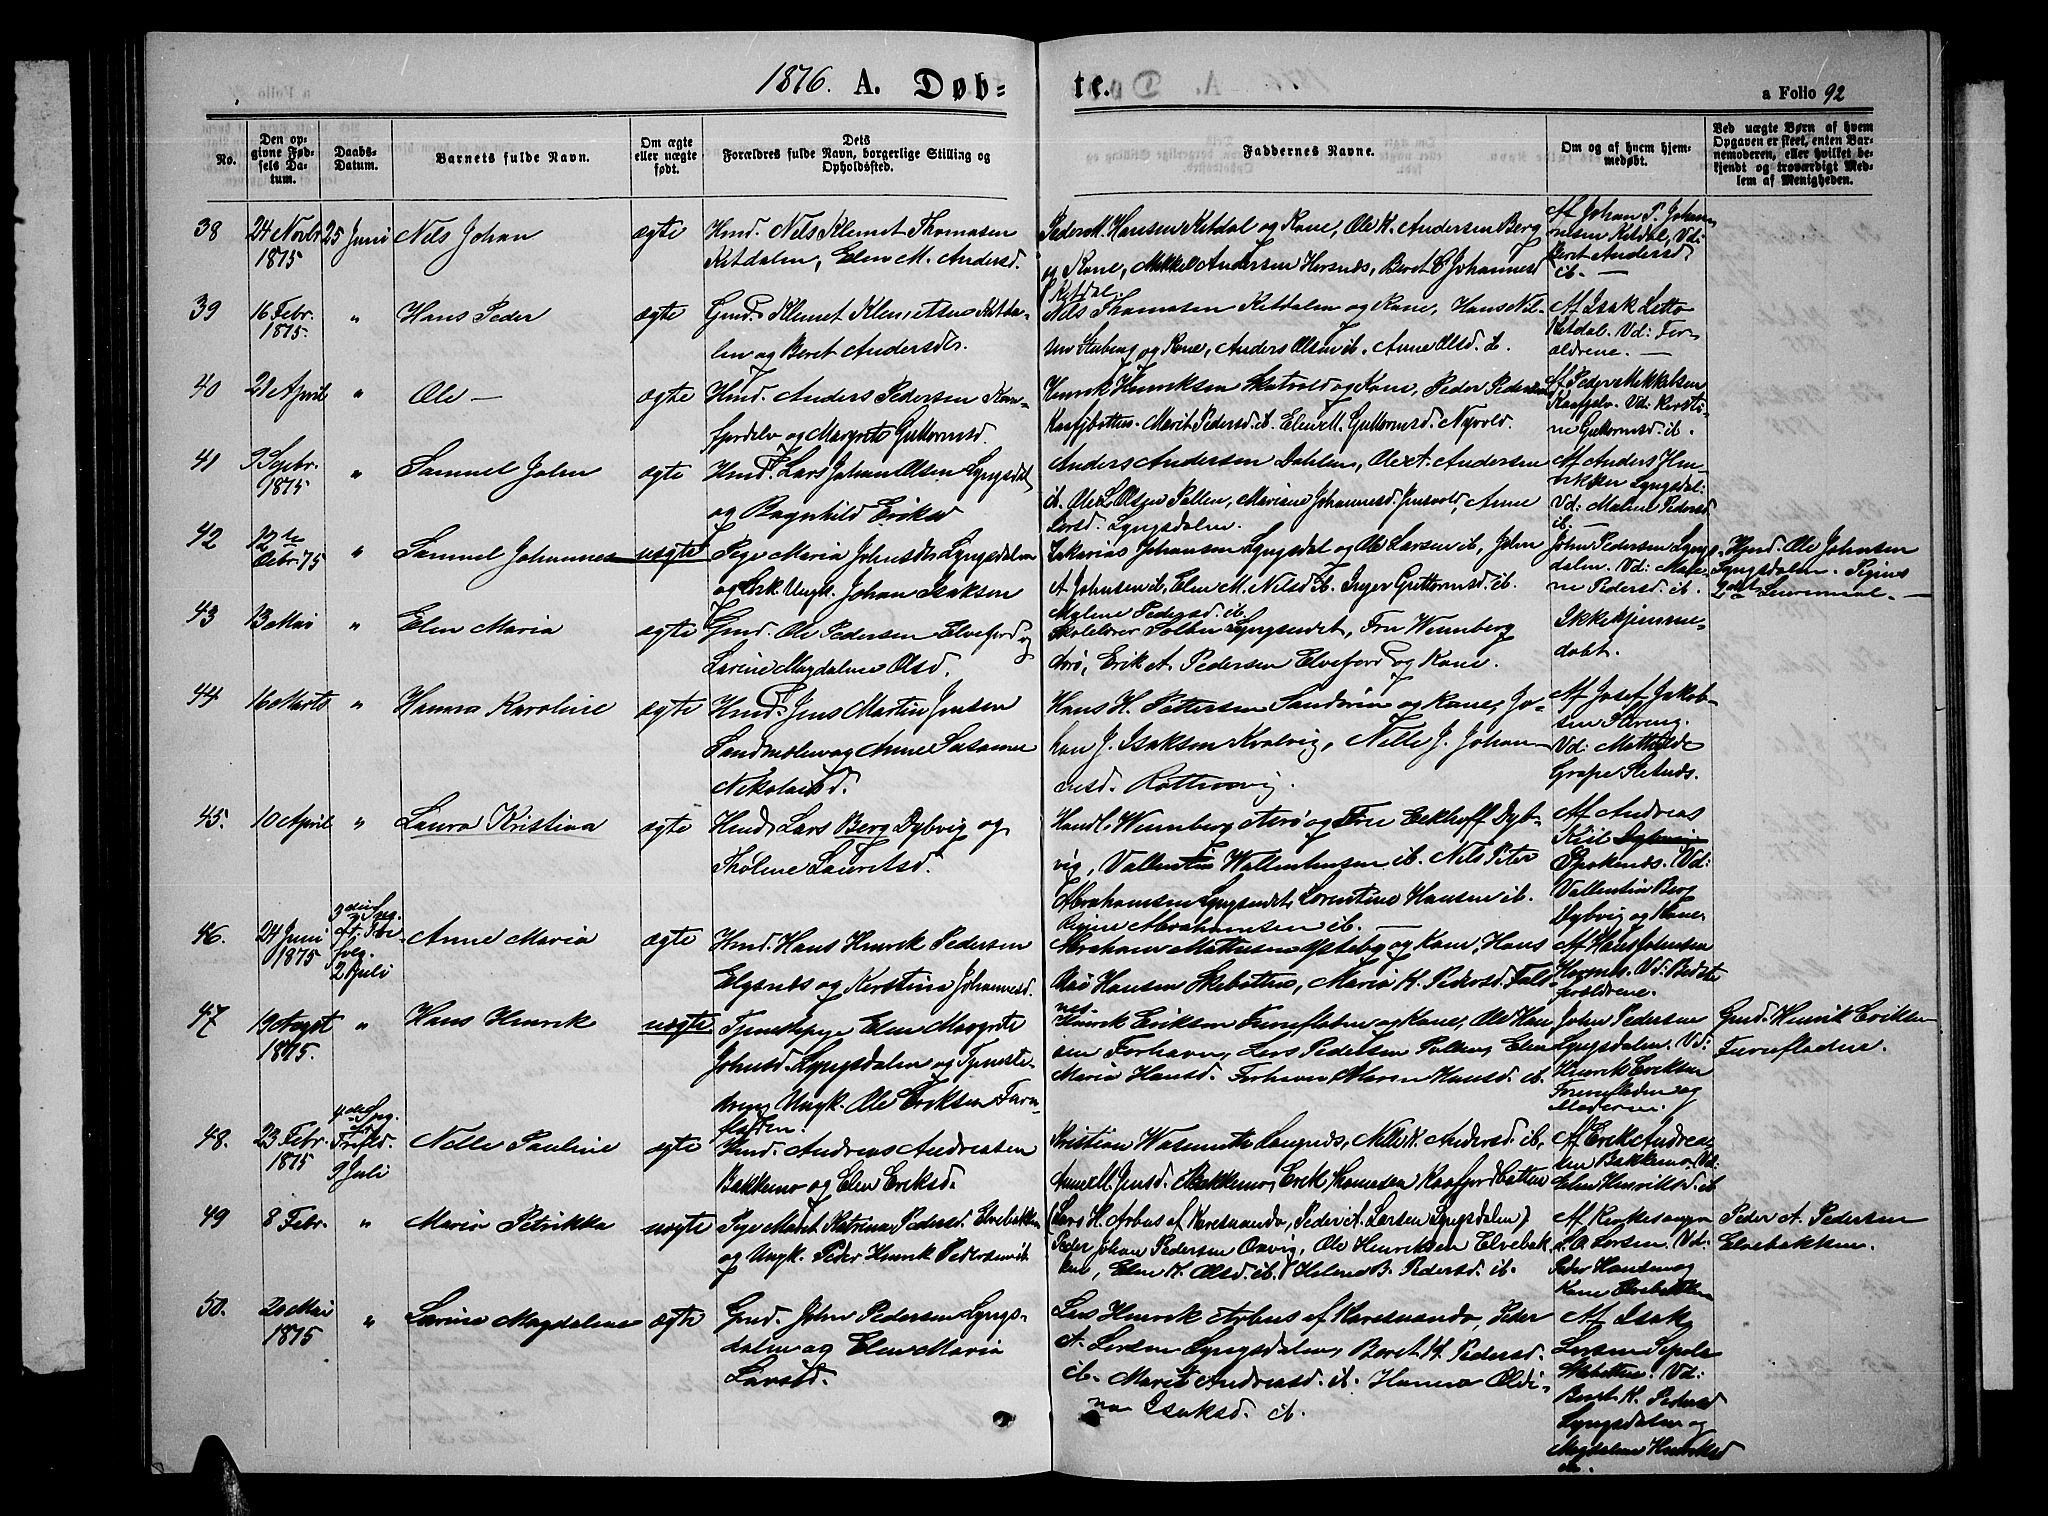 1876. A. Døb-
te.
a Folio 92
No.
Den op-
givne Fød-
sels Da-
tum.
Daabs-
Datum.
Barnets fulde Navn.
Om ægte
eller uægte
født.
Dets
Forældres fulde Navn, borgerlige Stilling og
Opholdssted.
Faddernes Navne.
Om og af hvem hjem-
medøbt.
Ved uægte Børn af hvem
Opgaven er skeet, enten Bar-
nemoderen, eller hvilket be-
kjendt og troværdigt Med-
lem af Menigheden.
38
24 Novbr
1875
25 Juni
Nils Johan
ægte
Hmd. Nils Klemet Thomasen
Kitdalen, Elen M. Andersd.
Peder M. Hansen Kitdal og Kone, Ole K. Andersen Berg
og Kone, Mikkel Andersen Horsnes, Beret Johannesd
Kitdal.
Af Johan P. Johan-
nesen Kitdal, Vd:
Beret Andersd
ib. —
39
16 Febr.
1875.
"
Hans Peder
ægte
Gmd. Klemet Klemetsen Kitda-
len og Beret Andersdtr.
Nils Thomasen Kitdalen og Kone, Hans Nil-
sen Stuberg og Kone, Anders Olsen ib. Anne Olsd. ib.
Af Isak Letto
Kitdal. Vd: For-
ældrene. —
40
21 April
"
Ole —
ægte
Hmd. Anders Pedersen Kaa-
fjordelv og Margrete Guttormsd.
Henrik Henriksen Skatvold og Kone, Peder Pedersen
Kaafjbotten. Marit Pedersd. ib. Elen M. Guttormsd. Nyvold.
Af Peder Mikkelsen
Kaafjelv. Vd: Kersti-
ne Guttormsd. ib.
41
9 Sepbr.
1875
"
Samuel John
ægte
Hmd. Lars Johan Olsen Lyngsdal
og Ragnhild Eriksd
Anders Andersen Dahlen, Ole A. Andersen
ib. Ole L. Olsen Pollen, Mariane Johannesd. Jensvold, Anne
Larsd. Lyngsdalen.
Af Anders Hen-
riksen Lyngsdal.
Vd: Malene Pedersd
ib. —
42
12te
Octbr. 75
"
Samuel Johannes
uægte
Pige Maria Johnsdtr Lyngsdalen
og Enk. Ungk. Johan Isaksen
Zakarias Johansen Lyngsdal og Ole Larsen ib, John
A. Johnsen ib, Elen M. Nilsd ib. Inger Guttormsd. ib.
Malene Pedersd. ib.
John Pedersen Lyngs-
dalen. Vd: Male-
ne Pedersd. ib.
Hjmd. Ole Johnsen
Lyngsdalen. Pigens
2det Leiermaal. —
43
13 Mai
"
Elen Maria
ægte
Gmd. Ole Pedersen Elvefjord og
Larine Magdalene Olsd.
Skolelærer Lyngseidet, Fru Wennberg
Aarø, Erik A. Pedersen Elvefjord og Kone.
Ikke hjemme-
døbt.
44
16 Marts
"
Hanna Karoline
ægte
Hmd. Jens Martin Jensen
Sandmelen og Anne Susanne
Nikolaisd.
Hans H. Pettersen Sandøren og Kone, Jo-
han J. Isaksen Kvalvig, Nille J. Johan-
nesd. Rottenvig.
Af Josef Jakob-
sen Steeng.
Vd: Mathilde
Grape Sletnes.
45.
10 April
"
Laura Kristina
ægte
Hmd. Lars Berg Dybvig og
Tholene Lauritsd.
Handl. Wennberg Aarø og Fru Eckhoff Dyb-
vig, Vallentin Wallenhensen ib. Nils Peter
Abrahamsen Lyngseidet, Lorentine Hansen ib.
Regine Abrahamsen ib. —
Af Andreas
Kiil Dybvig
Spokenes. Vd:
Vallentin Berg
Dybvig og Kone.
46.
24 Juni
1875
3die Søg.
2 Juli
Anne Maria
ægte
Hmd. Hans Henrik Pedersen
Elgsnes og Kerstina Johannesd.
Abraham Mathisen Ytteby og Kone, Hans
Hansen Skibotten, Maria K. Pedersd. Fals-
nes.
Af Hans Johnsen
Hornes. Vd: Bedste
forældrene.
47
19 August
1875.
"
Hans Henrik
uægte
Tjenestepige Elen Margrete
Johnsd. Lyngsdalen og Tjeneste-
dreng Ungk. Ole Eriksen Furu-
flaten.
Henrik Eriksen Furuflaten og Kone, Ole Han-
sen Forhavn, Lars Pedersen Pollen, Elen
Maria Hansd. Forhavn, Maren Hansd. ib.
John Pedersen
Lyngsdalen. Vd:
Henrik Eriksen
Furuefladen og
Moderen.
Gmd. Henrik Eriksen
Furuefladen.
48.
23 Febr.
1875
4de Søg.
Trefld.
9 Juli
Nelle Pauline
ægte
Hmd. Andreas Andreasen
Bakkemo og Elen Eriksd.
Kristian Wasmuth Langnes, Nille K. Andersd. ib,
Anne M. Jensd. Bakkemo, Erik Hansen Kaafjordbotten
Af Erik Andrea-
sen Bakkemo. Vd:
Elen Henriksd. ib
49
8 Febr.
"
Maria Petrikka
uægte
Pige Marit Katrina Pedersd. Elvebakken
og Ungk. Peder Henrik Pedersen ib
(Lars H. Arbus af Karesuando, Peder A. Larsen Lyngsdalen)
Peder Johan Pedersen Oxvig, Ole Henriksen Elvebak
ken, Elen K. Olsd. ib. Helene B. Pedersd. ib.
Af Kirkesanger
L. O. Larsen. Vd:
Peder Hansen og
Kone Elvebakken
Peder A. Pedersen
Elvebakken.
50.
20 Mai
1875
"
Larine Magdalene
ægte
Gmd. John Pedersen Lyngs-
dalen og Elen Maria
Larsd.
Lars Henrik Arbus af Karesuando, Peder
A. Larsen Lyngsdalen, Beret K. Pedersd.
ib. Marit Andreasd. ib. Hanna Oldi-
na Isaksd. ib.
Af Isak
Larsen Sepola
Skibotten. Vd:
Beret K. Pedersd
Lyngsdalen og
Magdalene Henriksd
ib.